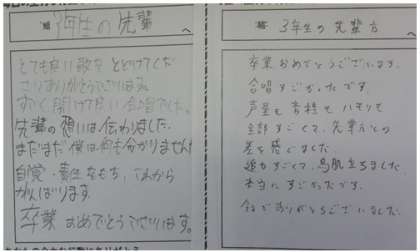 3年生の先輩へ
とても良い歌をとどけてくだ
さりありがとうございます。
すごく聞けて良い合唱でした。
先輩の想いは伝わりました。
まだまだ僕は何も分かりません
自覚・責任をもち、これから
がんばります。
卒業おめでとうございます。
3年生の先輩方へ
卒業おめでとうございます。
合唱すごかったです。
声量も音程もハモリも
全部すごくて、先輩方との
差を感じました。
迫力すごくて、鳥肌立ちました。
本当にすごかったです。
今までありがとうございました。